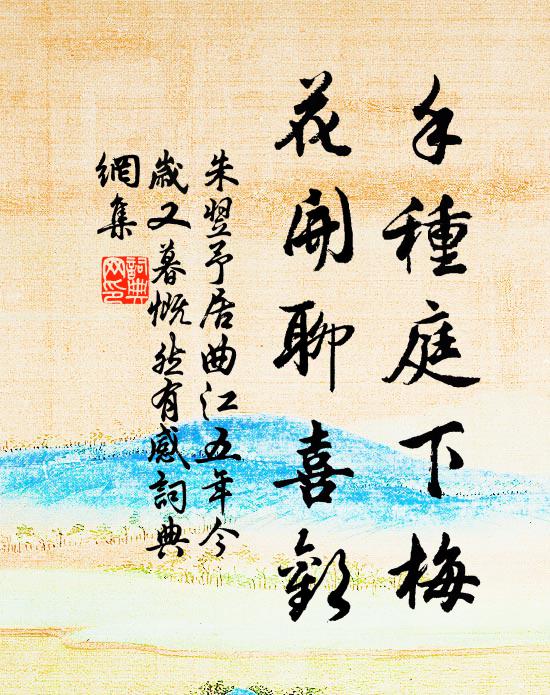 手種庭下梅
花開聊喜歡
朱翌予居曲江五年今
歲又暮慨然有感詞典
網集
詞典
網印